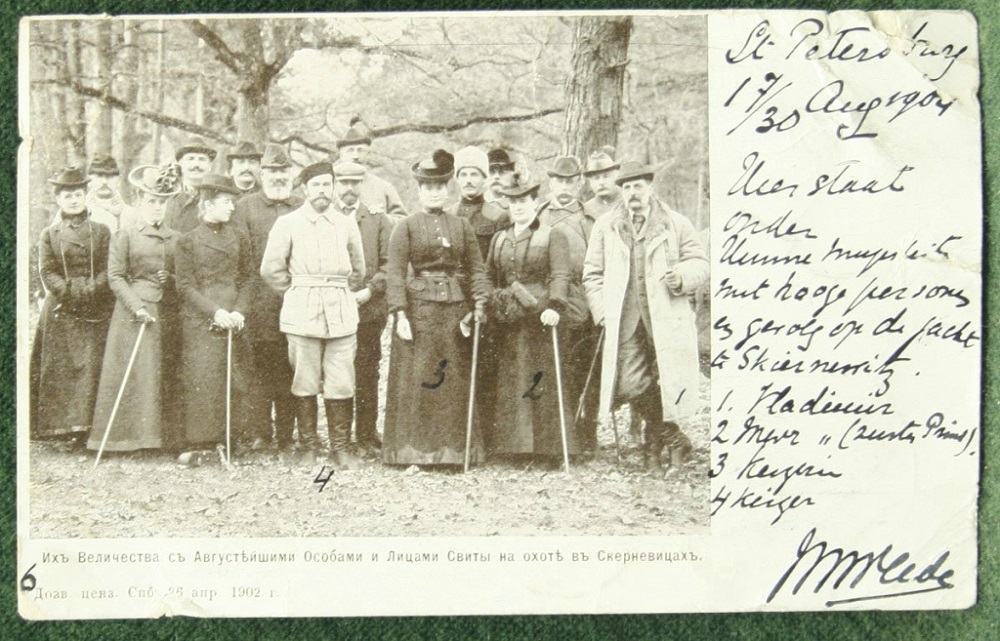 St Petersburg
17/30 Aug 1904
Hier staat
onder
Hunne majesteits
met hooge personen
en gevolg op de jacht
te Skiernewitz.
1. Vladimir
2 Mevr " (zuster Prins).
3 Keizerin
4 Keizer
3
2
1
4
Ихъ Величества съ Августѣйшими Особами и Лицами Свиты на охотѣ въ Скерневицахъ.
6
Дозв. ценз. Спб. 26 апр. 1902 г.